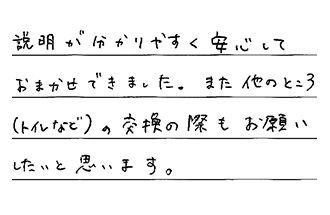 説明が分かりやすく安心して
おまかせできました。また他のところ
(トイレなど)の交換の際もお願い
したいと思います。